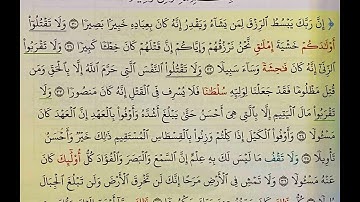 ﴿ إِنَّ رَبَّكَ يَبْسُطُ ٱلرِّزْقَ لِمَن يَشَآءُ وَيَقْدِرُ إِنَّهُۥ كَانَ بِعِبَادِهِۦ خَبِيرًۢا بَصِيرًا ۝ وَلَا تَقْتُلُوٓا۟
أَوْلَٰدَكُمْ خَشْيَةَ إِمْلَٰقٍ نَّحْنُ نَرْزُقُهُمْ وَإِيَّاكُمْ إِنَّ قَتْلَهُمْ كَانَ خِطْـًٔا كَبِيرًا ۝ وَلَا تَقْرَبُوا۟
ٱلزِّنَىٰٓ إِنَّهُۥ كَانَ فَٰحِشَةً وَسَآءَ سَبِيلًا ۝ وَلَا تَقْتُلُوا۟ ٱلنَّفْسَ ٱلَّتِى حَرَّمَ ٱللَّهُ إِلَّا بِٱلْحَقِّ وَمَن
قُتِلَ مَظْلُومًا فَقَدْ جَعَلْنَا لِوَلِيِّهِۦ سُلْطَٰنًا فَلَا يُسْرِف فِّى ٱلْقَتْلِ إِنَّهُۥ كَانَ مَنصُورًا ۝ وَلَا
تَقْرَبُوا۟ مَالَ ٱلْيَتِيمِ إِلَّا بِٱلَّتِى هِىَ أَحْسَنُ حَتَّىٰ يَبْلُغَ أَشُدَّهُۥ وَأَوْفُوا۟ بِٱلْعَهْدِ إِنَّ ٱلْعَهْدَ كَانَ
مَسْـُٔولًا ۝ وَأَوْفُوا۟ ٱلْكَيْلَ إِذَا كِلْتُمْ وَزِنُوا۟ بِٱلْقِسْطَاسِ ٱلْمُسْتَقِيمِ ذَٰلِكَ خَيْرٌ وَأَحْسَنُ
تَأْوِيلًا ۝ وَلَا تَقْفُ مَا لَيْسَ لَكَ بِهِۦ عِلْمٌ إِنَّ ٱلسَّمْعَ وَٱلْبَصَرَ وَٱلْفُؤَادَ كُلُّ أُو۟لَٰٓئِكَ كَانَ
عَنْهُ مَسْـُٔولًا ۝ وَلَا تَمْشِ فِى ٱلْأَرْضِ مَرَحًا إِنَّكَ لَن تَخْرِقَ ٱلْأَرْضَ وَلَن تَبْلُغَ ٱلْجِبَالَ